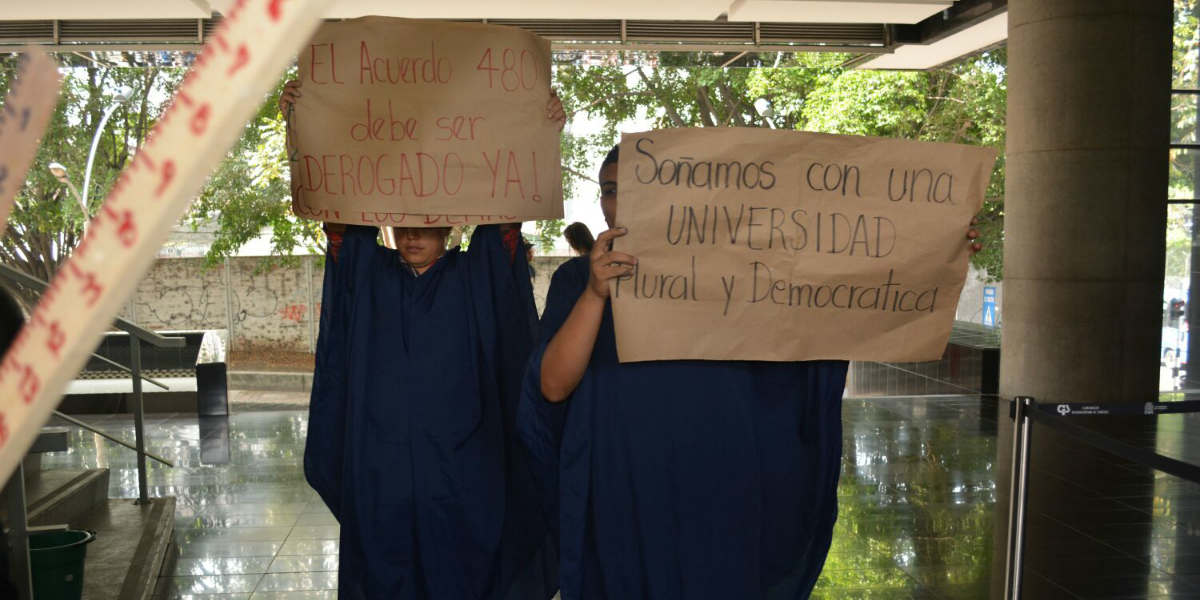 El Acuerdo 480
debe ser
DEROGADO YA!
CON LOS
Soñamos con una
UNIVERSIDAD
Plural y Democratica